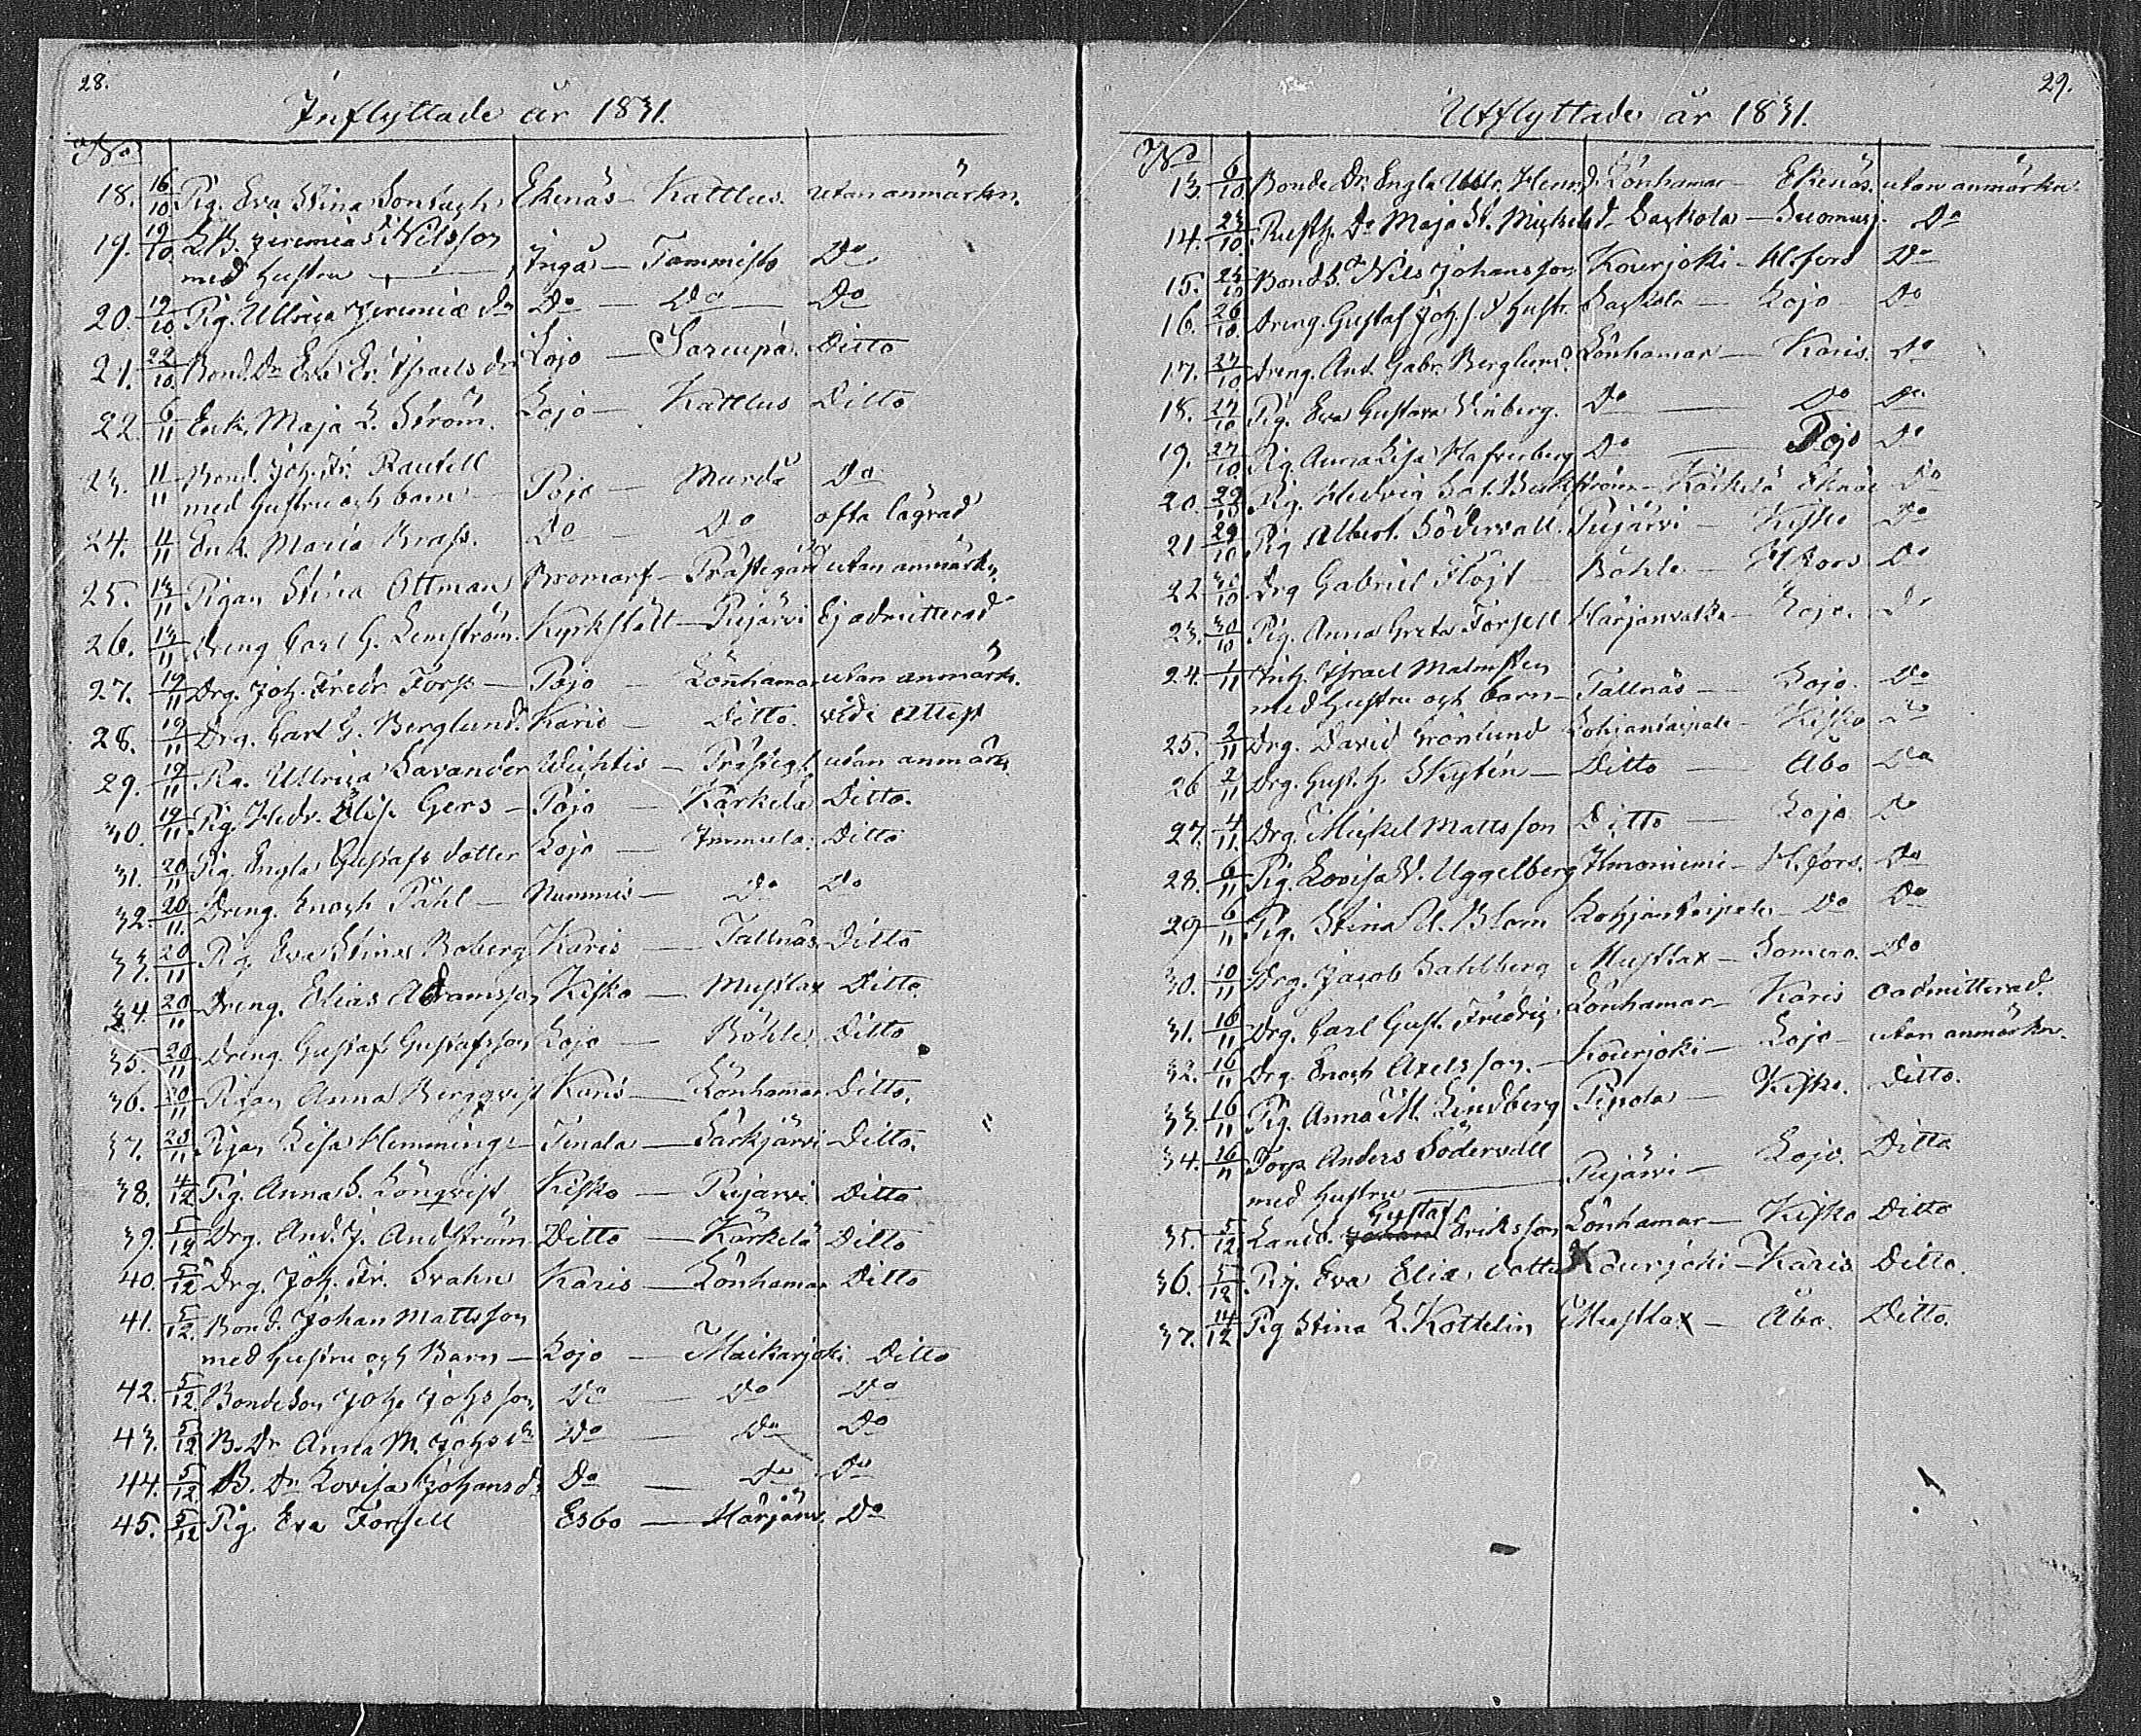 28.
Inflyttade år 1831.
No
18. 16/10 Pig. Eva Stina Ekenäs Kattlus. utan anmärkn.
19. 19/10 Jeremias Nilsson
med hustru — Ingå — Tammisto Do
20. 19/10 Pig. Ulrica Jeremiæ dr Do — Do — Do
21. 22/10 Bond. Dr Eva Israels dr Lojo — Ditto
22. 6/11 Enk. Maja L. Ström. Lojo — Kattlus Ditto
23. 11/11 Bond. Joh. Fr. Rautell
med hustru och barn — Pojo — Murdå Do
24. 4/11 Enk. Maria Brass. Do — Do ofta lägrad
25. 13/11 Pigan Stina Ottman Bromarf — Prästegård utan anmärkn.
26. 13/11 Dreng Carl G. Lemström. Kyrkslätt — Pujärvi Ej admitterad
27. 19/11 Drg. Joh. Fredr. Forss — Pojo — Lönhamar utan anmärk.
28. 19/11 Drg. Carl G. Berglund. Karis — Ditto. vide attest
29. 19/11 Pig. Ullrica Savander Wichtis — Prästeg. utan anmärk.
30. 19/11 Pig. Hedv. Elis. Gers — Pojo — Kärkelä Ditto.
31. 20/11 Pig. Engla Gustafs dotter Lojo — Immula. Ditto
32. 20/11 Dreng. Enoch Påhl — Nummis — Do Do
33. 20/11 Pig. Eva Stina Boberg Karis — Tallnäs Ditto
34. 20/11 Dreng. Elias Adramsson Kisko — Mustlax Ditto.
35. 20/11 Dreng. Gustaf Gustafsson Lojo — Böhle Ditto
36. 20/11 Pigan Anna Bergqvist Karis — Lönhamar Ditto.
37. 28/11 Pigan Lisa Hemming — Tenala — Särkjärvi Ditto.
38. 4/12 Pig. Anna S. Lönqvist Kisko — Pujärvi Ditto
39. 5/12 Drg. And. J. Andström Ditto — Kärkelä Ditto
40. 5/12 Drg. Joh. Fr. Svahn Karis — Lönhamar Ditto
41. 5/12. Bond. Johan Mattsson
med hustru och Barn — Lojo — Maikarjoki Ditto
42. 5/12. Bondeson Joh. Johsson, Do — Do Do
43. 5/12 B. Dr Anna M. Johs dr Do — Do Do
44. 5/12. B. Dr Lovisa Johans dr Do — Do Do
45. 5/12 Pig. Eva Forsell Esbo — Härjänv. Do
29.
Utflyttade år 1831.
No
13. 6/10 Bonde Dr. Engla Ulr. Henr. d. Lönhamar — Ekenäs. utan anmärkn.
14. 23/10. Rusth. Dr Maja St. Mickels d. Saxkola — Suomusj. Do
15. 25/10 Bond S. Nils Johansson Kourjoki — H.fors Do
16. 26/10. Dreng. Gustaf Joh. s. o hustr. Saxkola — Lojo Do
17. 27/10 Dreng. And. Gabr. Berglund. Lönhamar — Karis. Do
18. 27/10 Pig. Eva Gustava Winberg. Do — Do Do
19. 27/10. Pig. Anna Lisa Do — Pojo Do
20. 29/10 Pig. Hedvig Kärkelä Ekenäs Do
21 29/10 Pig. Albert. Södervall. Pujärvi — Kisko Do
22 30/10 Drg Gabriel Flöjt — Böhle — H.fors Do
23. 30/10 Pig. Anna Greta Forsell Härjänvatka — Lojo. Do
24. 1/11 Israel Malmsten
med hustru och barn — Tallnäs — Lojo. Do
25. 2/11 Drg. David Grönlund Lohjantaipale — Kisko Do
26 2/11 Drg. Gust. H. Skytén — Ditto — Åbo Do
27. 4/11. Drg. Mickel Mattsson Ditto — Lojo. Do
28. 6/11 Pig. Lovisa W. Uggelberg Ilmoniemi — H.fors. Do
29 6/11 Pig. Stina U. Blom Lohjantaipale — Do Do
30. 10/11 Drg. Jacob Sahlberg Mustlax — Somero. Do
31. 16/11 Drg. Carl Gust. Fredrig. Lönhamar — Karis oadmitterad.
32. 16/11 Drg. Enoch Axelsson. — Kourjoki — Lojo — utan anmärkn.
33 16/11 Pig. Anna M. Lindberg Pipola — Kisko. Ditto.
34. 16/11 Torp. Anders Södervall
med hustru — Pujärvi — Lojo. Ditto
35. 5/12 Landb. Gustaf Eriksson Lönhamar — Kisko Ditto
36. 5/12. Pig. Eva Elias dotter Kourjoki — Karis Ditto.
37. 14/12 Pig Stina L. Kottelin Mustlax — Åbo. Ditto.